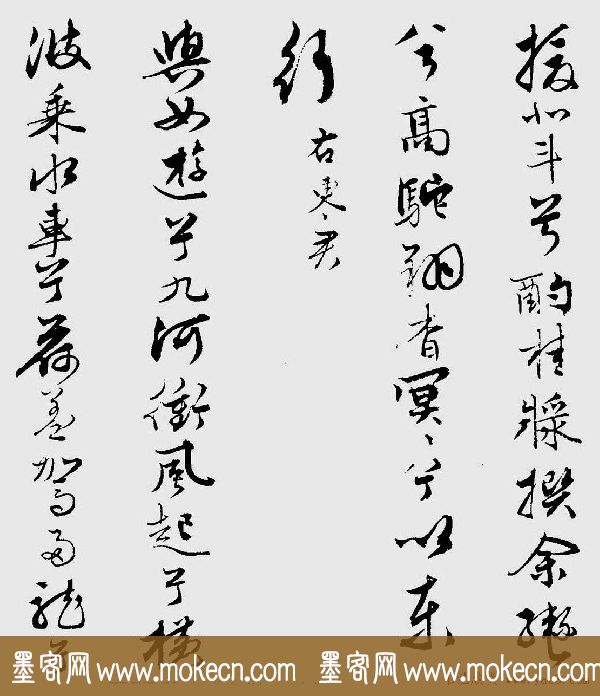 援北斗兮酌桂漿撰余轡
兮高駝翔杳冥〻兮以東
行
右東君
與女遊兮九河衝風起兮橫
波乘水車兮荷蓋駕兩龍兮
墨客网 www.mokecn.com 墨客网 www.mokecn.com